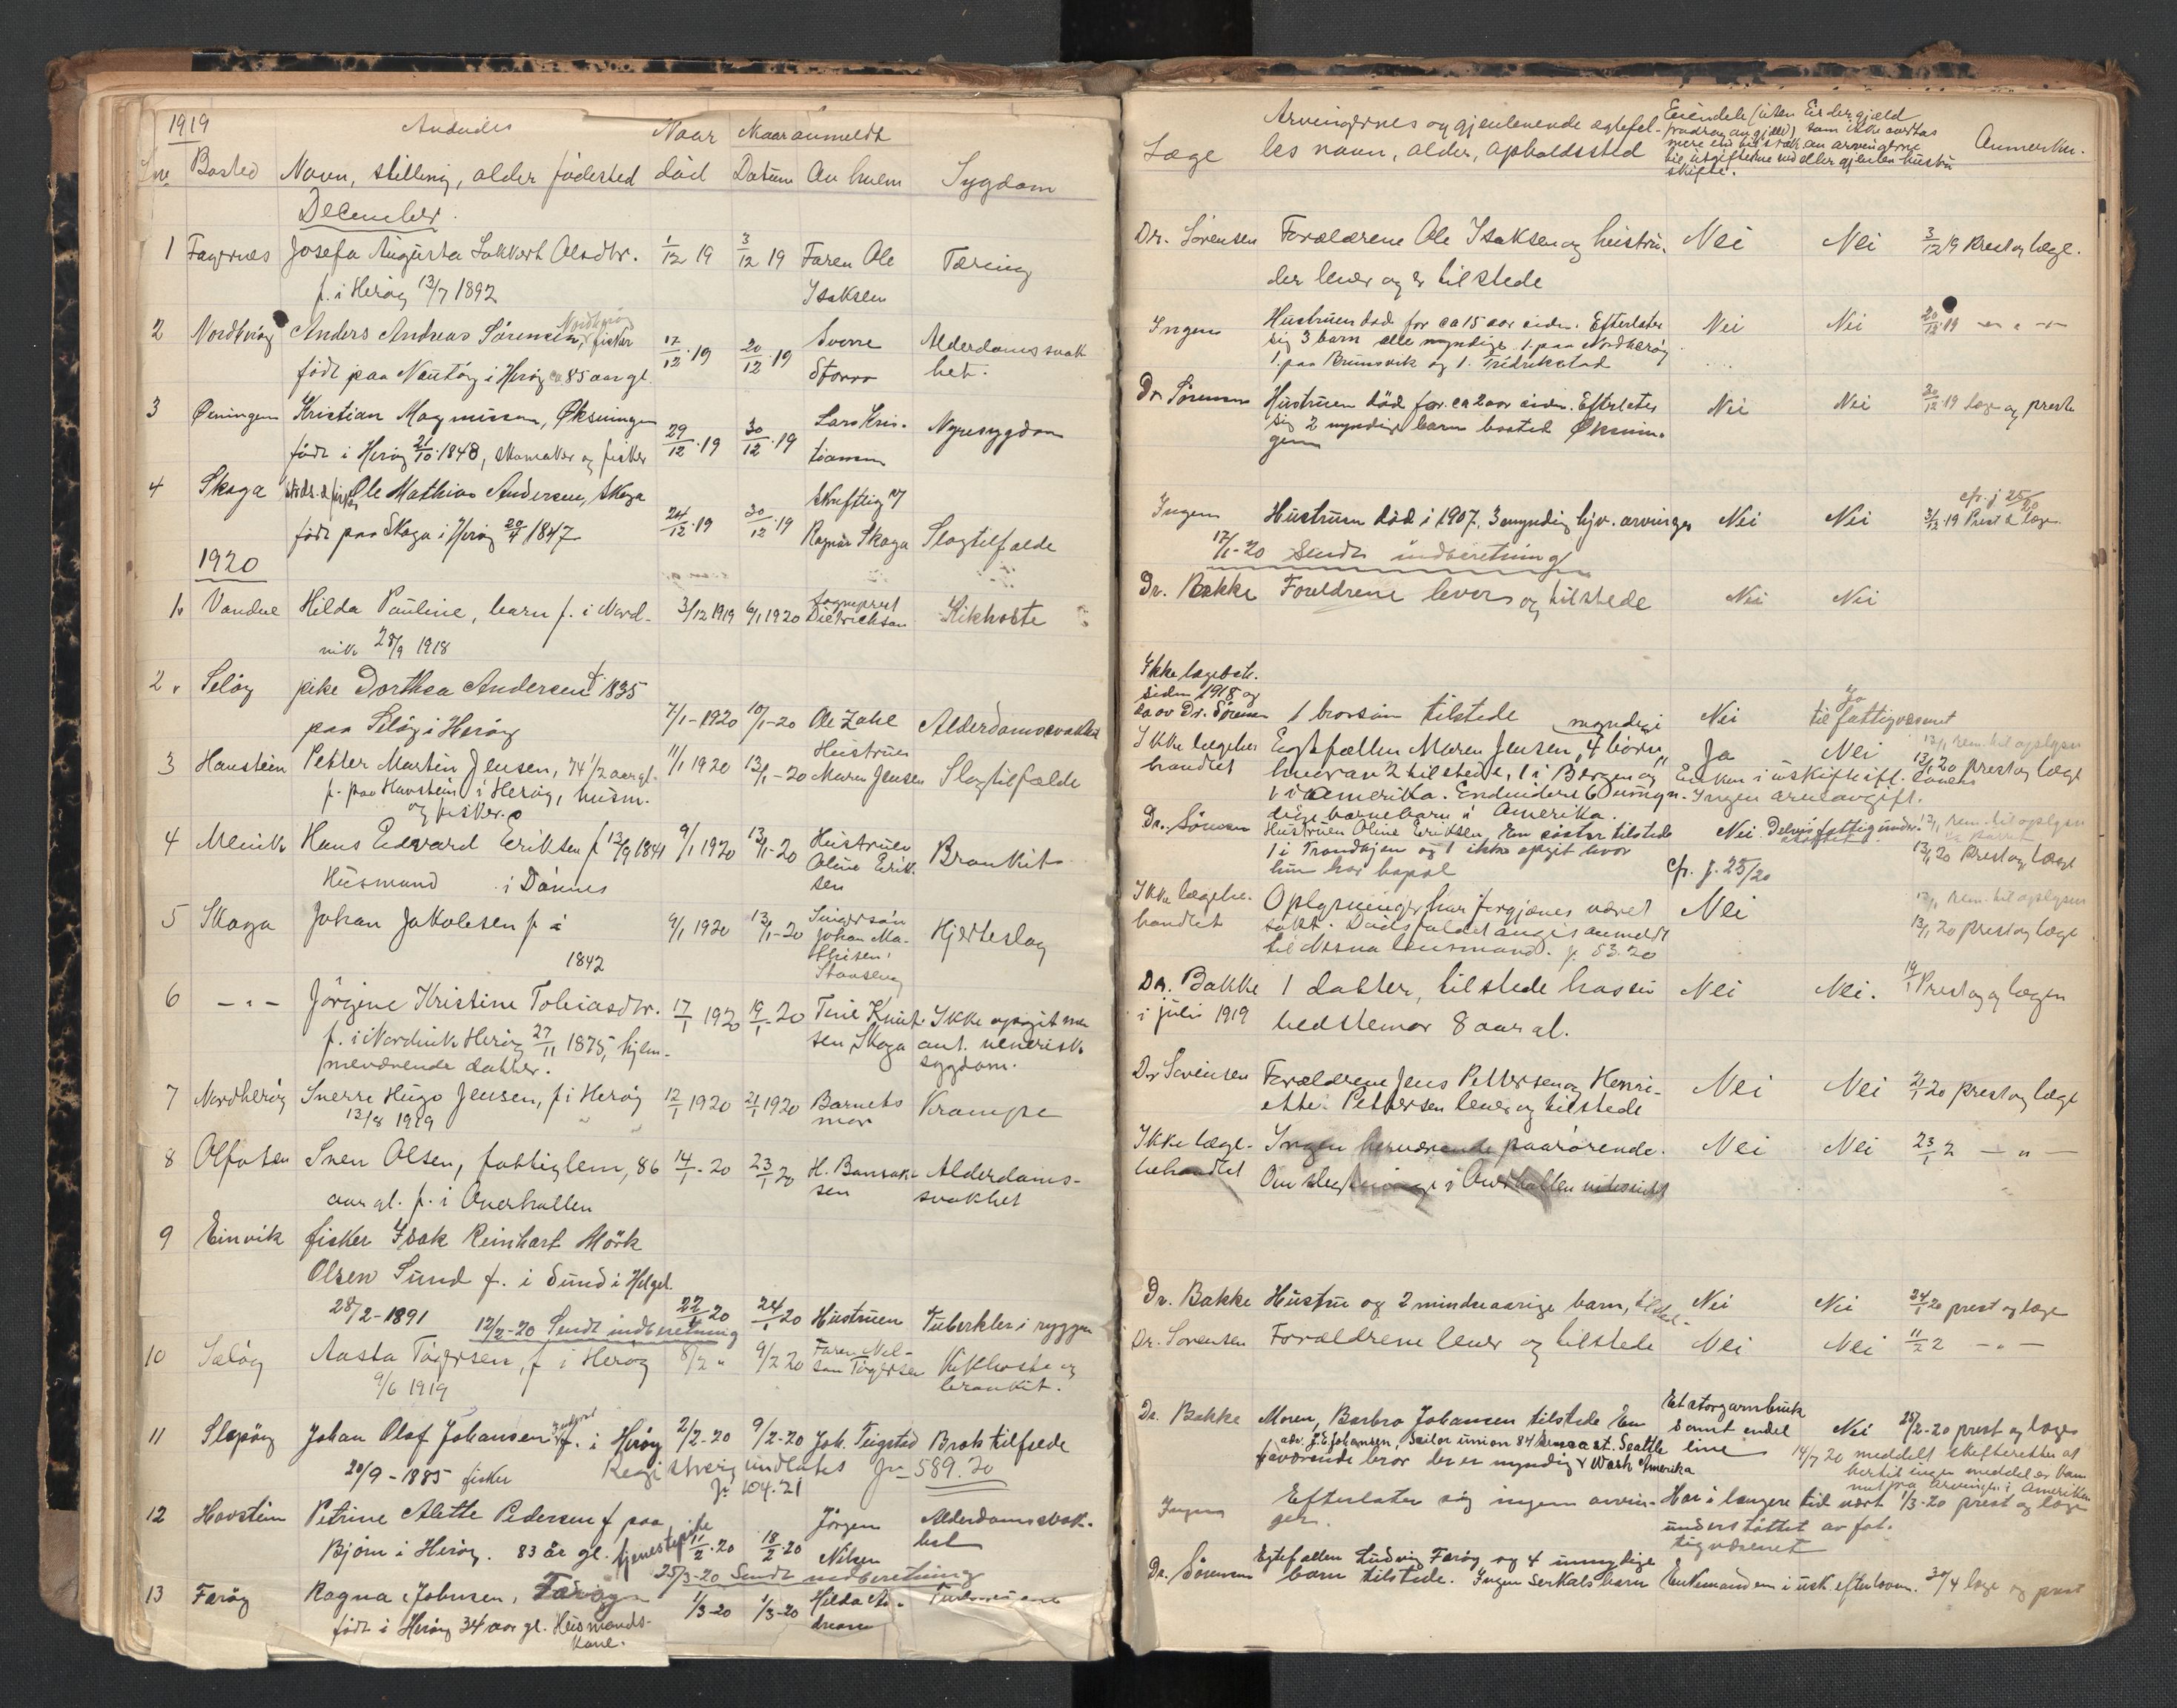 1919
Avdødes
Naar
Naar anmeldt
Bosted
Navn, stilling, alder fødested
død
Datum
Av hvem
Sygdom
December.
1 Fagernes Josefa Augusta Olsdtr. 1/12 19 3/12 19 Faren Ole Tæring
f. i Herøy 13/7 1892 Isaksen
2 Nordherøy Anders Andreas Sørensen, fisker
Nordherøy
17/12.19 20/12.19 Sverre Alderdomssvak
født paa i Herøy ca 85 aar gl. Storrø het.
3 Øxningen Kristian Magnussen, Øksningen
29/12.19 30/12.19 Lars Kris- Nyresygdom
født i Herøy 21/10 1848, skomaker og fisker tiansen
4 Skaga Ole Mathias Andersen, Skaga
24/12.19 30/12.19 Skriftlig
født paa Skaga i Herøy 20/4 1847 Ragnar Skaga Slagtilfælde
1920
1. Vandve Hilda Pauline, barn f. i Nord- 3/12 1919 6/1 1920 Sogneprest Dietrichson Kikhoste
vik 28/9 1918
2. Seløy pike Dorthea Andersen f 1835
paa Seløy i Herøy 7/1-1920 10/1-20 Ole Zahl Alderdomssvakhet
3 Havstein Petter Martin Jensen, 74 1/2 aar gl. 11/1 1920 13/1-20 Hustruen Maren Jensen Slagtilfælde
f. paa Havstein i Herøy, husm.
og fisker.
4 Hans Edvard Eriksen f 13/9 1841 9/1 1920 13/1-20 Hustruen
Oline Erik- Bronkit
Husmand i Dønnes sen
5 Skaga Johan Jakobsen f i 9/1 1920 13/1-20 Svigersøn
Johan Ma- Hjerteslag
thisen,
1842
6 - " - Jørgine Kristine Tobiasdtr. 17/1 1920 19/1-20 Tine Knut- Ikke opgit men
f. i Nordvik Herøy 27/11 1875, hjem- sen, Skaga ant. venerisk
meværende datter. sygdom.
7 Nordherøy Sverre Hugo Jensen, f i Herøy 12/1 1920 21/1 1920 Barnets Krampe
13/8 1919 mor
8 Sven Olsen, fattiglem, 86 14/1-20 23/1 20 H. Alderdoms-
aar gl. f. i Overhallen sen svakhet
9 Einvik fisker Isak Reinhart Mørk
Olsen Sund f. i Sund i Helgel.
28/2-1891 22/1 20 24/1 20 Hustruen Tuberkler i ryggen
12/2-20 Sendt indberetning
10 Seløy Aasta Tøgersen, f i Herøy 8/2 " 9/2 20 Faren Nel- Kikhoste og
9/6 1919 son Tøgersen bronkit.
11 Slapøy Johan Olaf Johansen f. i Herøy 2/2-20 9/2-20 Joh. Teigstad Brok tilfælde
20/9-1885 fisker Registrering undlates Jr 589.20
Jr 104.21
12 Havstein Petrine Alette Pedersen f paa Jørgen Alderdomssvak-
Bjørn i Herøy. 83 år gl. tjenestepike 11/2.20 18/2-20 Nilsen het
25/3-20 Sendt indberetning
13 Færøy Ragna Johnsen, Færøy 1/3-20 1/3-20 Hilda An-
født i Herøy 34 aar gl. Husmands- dreasen
kone.
Læge
Arvingernes og gjenlevende egtefel-
les navn, alder, opholdssted
Eiendele (uten
fradrag av gjæld) som
mere end tilstræk.
til utgifterne ved
skifte.
Er der gjæld
ikke overtas
av arvingerne
eller gjenlev. hustru
Anmerkn.
Dr. Sørensen Forældrene Ole Isaksen og hustru. Nei Nei 3/12 19 Prest og læge.
der lever og er tilstede
Ingen Hustruen død for ca 15 aar siden. Efterlater Nei Nei 20/12.19 - " -
sig 3 barn alle myndige 1. paa Nordherøy
1. paa Brunsvik og 1. Fredrikstad
Dr Sørensen Hustruen død for ca 2 aar siden. Efterlater Nei Nei 30/12.19 læge og prest
sig 2 myndige barn bosted Øksnin-
gen
cfr. j 25/20
Ingen Hustruen død i 1907. 3 myndig hjv. arvinger Nei Nei 31/12.19 Prest & læge
17/1-20 Sendt indberetning
Dr. Bakke Forældrene lever og tilstede Nei Nei
Ikke lægebeh.
siden 1918 og
da av Dr. Sørensen 1 brorsøn tilstede Nei Ja
til fattigvæsenet
myndige
Ikke lægebe- Egtefællen Maren Jensen, 4 børn, Ja Nei 13/1 20 prest og læge
handlet hvorav 2 tilstede, 1 i Bergen og Enken i uskiftet
1 i Amerika. Endvidere 6 umyn- Ingen arveavgift.
dige barnebarn i Amerika.
Dr. Sørensen Hustruen Oline Eriksen, En søster tilstede Nei Delvis fattigunder-
støttet.
1 i Trondhjem og 1 ikke opgit hvor 13/1 20 Prest og læge
hun har bopæl cfr. j. 25/20
Ikke lægebe- Oplysninger har forgjæves været Nei 13/1 20 prest og læge
handlet søkt. Dødsfaldet angis anmeldt
til Nesna lensmand. j. 53.20
Dr. Bakke 1 datter, tilstede hos sin Nei Nei. 19/1 Prest og lægen
i juli 1919 bedstemor 8 aar gl.
Dr Sørensen Forældrene Jens Pettersen og Henri- Nei Nei 21/1 20 prest og læge
ette Pettersen lever og tilstede
Ikke læge- Ingen herværende paarørende. Nei Nei 23/1 2 - " -
behandlet Om slegtninge i Overhallen vites
Dr. Bakke Hustru og 2 mindreaarige barn, tilsted- Nei Nei 24/1 20 prest og læge
Dr. Sørensen Forældrene lever og tilstede Nei Nei 11/2 2 - " -
Dr. Bakke Moren, Barbro Johansen tilstede En Et storgarnbruk
samt endel
line Nei 28/2-20 prest og læge
adr. J. E. Johansen, Sailor union 84 Seneca st. Seattle
Wash Amerika
fraværende bror der er myndig
14/7 20 meddelt skifteretten at
hertil ingen meddelelse kom-
met fra arvingen i Amerika
Ingen Efterlater sig ingen arvin- Har i længere tid vært 1/3-20 prest og læge
ger. understøttet av fat-
tigvæsenet
Dr. Sørensen Egtefællen Ludvig Færøy og 4 umyndige
barn tilstede. Ingen særkulsbarn Enkemanden i usk. efter loven. 30/4 læge og prest